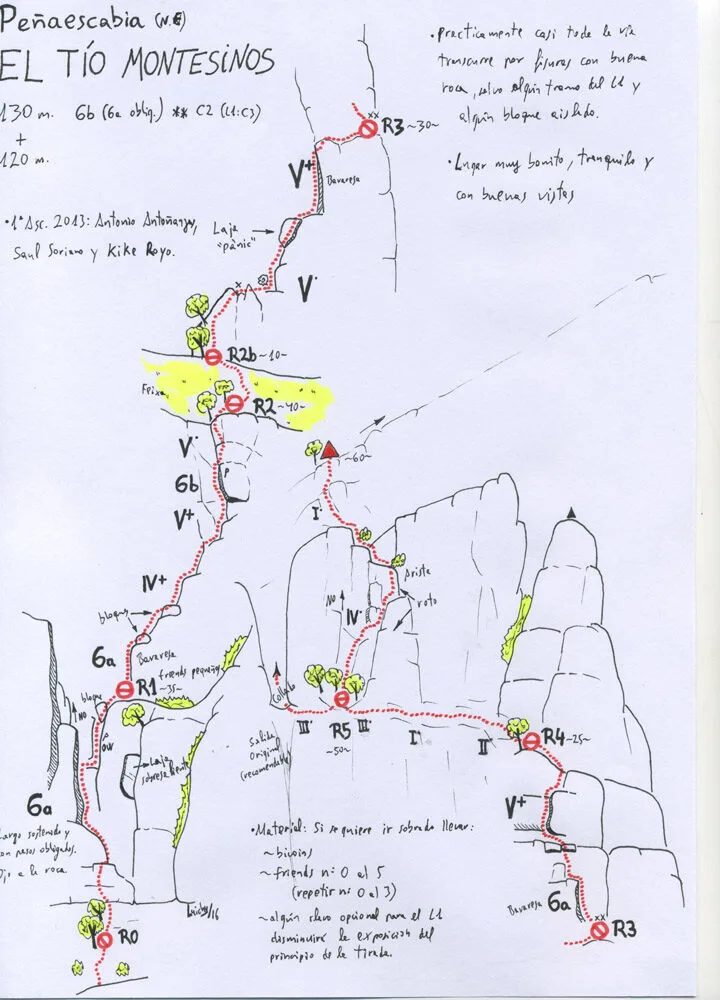 Peñaescabia (N.E)
EL TÍO MONTESINOS
130 m. 6b (6a oblig.) ** C2 (L1:C3)
+
120 m.
• 1ª Asc. 2013: Antonio Antoñanzas,
Saul Soriano y Kike Royo.
• practicamente casi toda la vía
transcurre por fisuras con buena
roca, salvo algún tramo del L1 y
algún bloque aislado.
• Lugar muy bonito, tranquilo y
con buenas vistas
xx
R3 ~30~
V+
Bavaresa
Laja
"pànic"
V·
x
R2b ~10~
Feixa
R2 ~40~
V·
6b
P
V+
IV+
bloques
6a
Bavaresa
friends pequeños
R1
~35~
bloque
NO
OW
Laja
sobresaliente
6a
Largo sostenido y
con pasos obligados.
Ojo a la roca.
R0
~60~
I·
Arista
roto
NO
IV·
Collado
III·
R5
~50~
III·
I·
II·
R4 ~25~
Salida
original
(recomendable)
V+
Bavaresa
6a
xx
R3
• Material: Si se quiere ir sobrado llevar:
~ bicoins
~ friends nº 0 al 5
(repetir nº 0 al 3)
~ algún clavo opcional para el L1
disminuirá la exposición del
principio de la tirada.